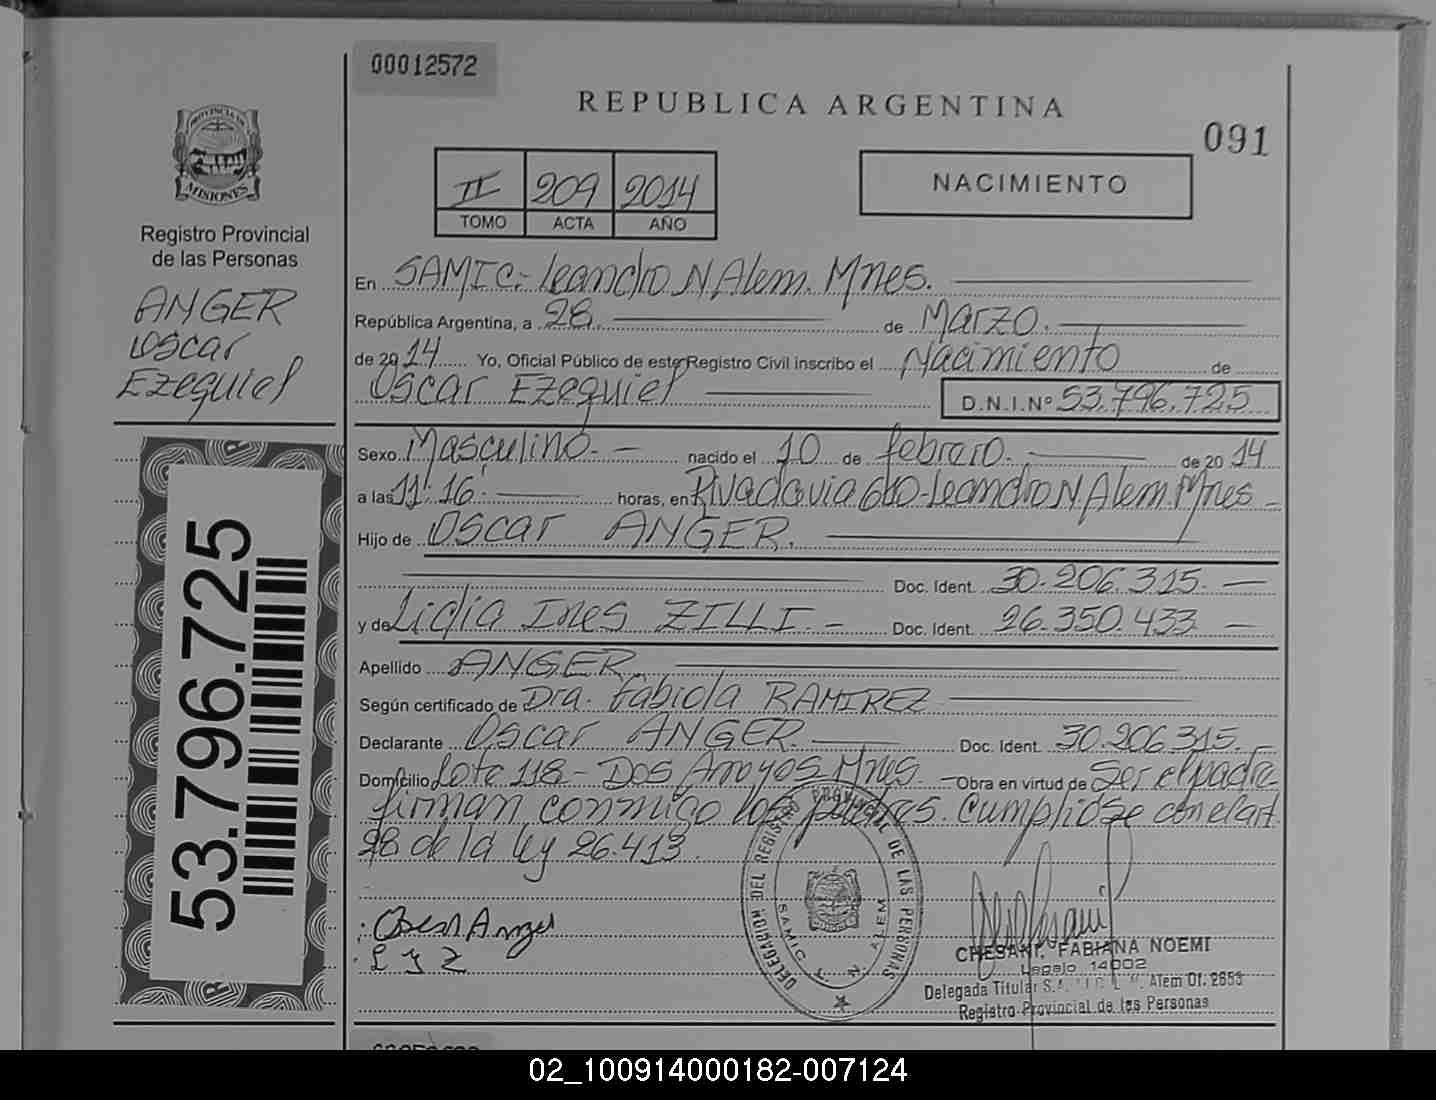 00012572
REPUBLICA ARGENTINA
091
PROVINCIA DE
MISIONES
Registro Provincial
de las Personas
ANGER
Oscar
Ezequiel
II 209 2014
TOMO ACTA AÑO
NACIMIENTO
En SAMIC.- Leandro N Alem. Mnes.
República Argentina, a 28. de Marzo.
de 2014 Yo, Oficial Público de este Registro Civil inscribo el Nacimiento de
Oscar Ezequiel D.N.I.Nº 53.796.725
Sexo Masculino.- nacido el 10 de febrero. de 2014
a las 11:16. horas, en Rivadavia 610-Leandro N Alem Mnes -
Hijo de Oscar ANGER.
Doc. Ident. 30.206.315. -
y de Lidia Ines ZILLI. - Doc. Ident. 26.350.433 -
Apellido ANGER
Según certificado de Dra. Fabiola RAMIREZ
Declarante Oscar ANGER. Doc. Ident. 30.206.315. -
Domicilio Lote 118 - Dos Arroyos Mnes. - Obra en virtud de Ser el padre
firman conmigo los padres. Cumpliose con el art.
28 de la ley 26.413.
53.796.725
Oscar Anger
L Y Z
DELEGACION DEL REGISTRO PROVINCIAL DE LAS PERSONAS
SAMIC L. N. ALEM
CHESANI, FABIANA NOEMI
Legajo 14002
Delegada Titular S.A.M.I.C. L. N. Alem Of. 2653
Registro Provincial de las Personas
02_100914000182-007124